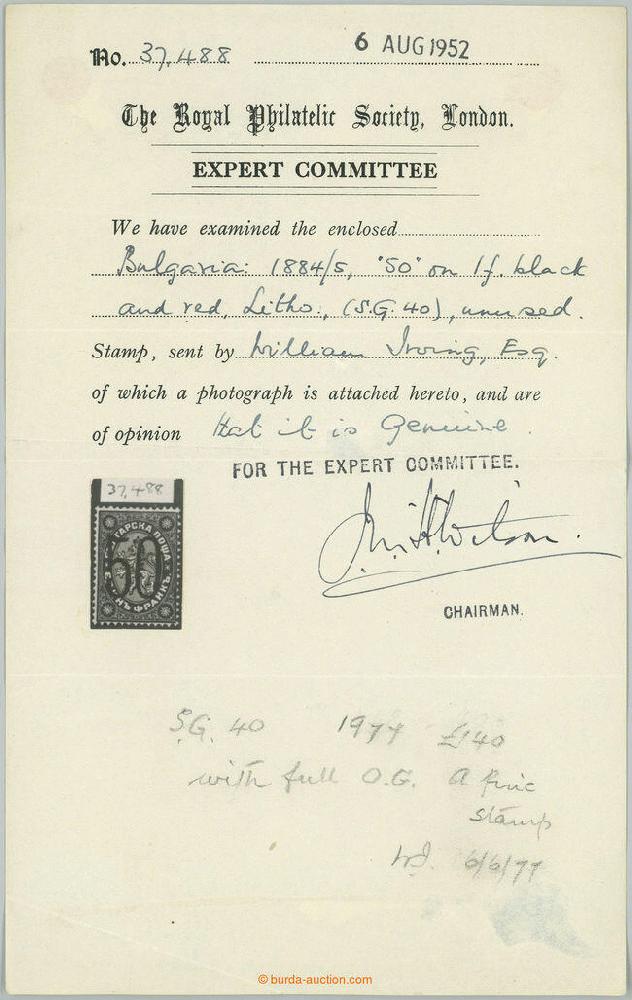 No. 37,488 6 AUG 1952
The Royal Philatelic Society, London.
EXPERT COMMITTEE
We have examined the enclosed
Bulgaria: 1884/5, "50" on 1f. black
and red, Litho., (S.G. 40), unused.
Stamp, sent by William Irving, Esq.
of which a photograph is attached hereto, and are
of opinion that it is Genuine.
FOR THE EXPERT COMMITTEE.
37,488
50
CHAIRMAN.
S.G. 40 1977 £140
with full O.G. A fine
stamp
6/6/77
© burda-auction.com